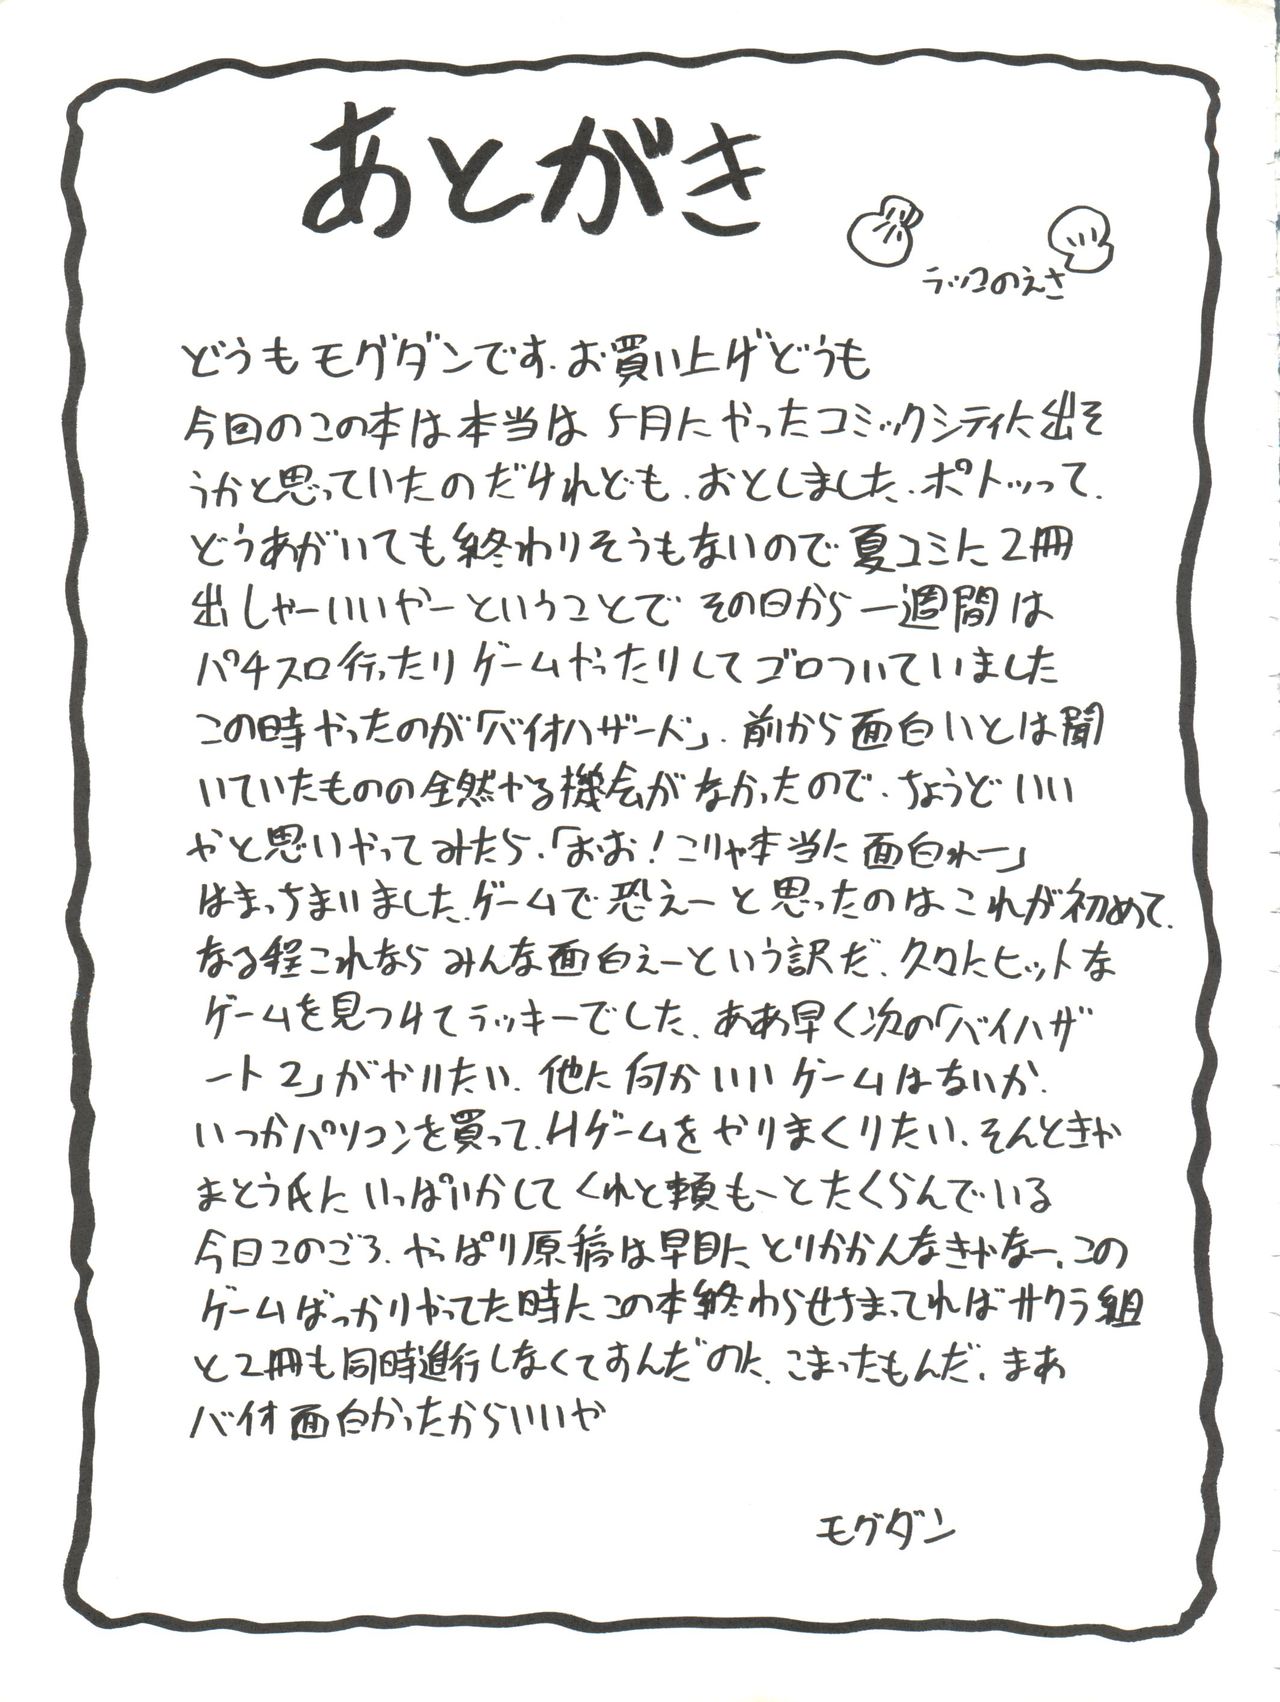 あとがき
ラッコのえさ
どうもモグダンです.お買い上げどうも
今回のこの本は本当は5月にやったコミックシティに出そ
うかと思っていたのだけれども.おとしました.ポトッって.
どうあがいても終わりそうもないので夏コミに2冊
出しゃーいいやーということでその日から一週間は
パチスロ行ったりゲームやったりしてゴロついていました
この時やったのが「バイオハザード」.前から面白いとは聞
いていたものの全然やる機会がなかったので.ちょうどいい
やと思いやってみたら.「おお!こりゃ本当に面白れー」
はまっちまいました.ゲームで恐えーと思ったのはこれが初めて.
なる程これならみんな面白えーという訳だ.久々にヒットな
ゲームを見つけてラッキーでした.ああ早く次の「バイハザ
ート2」がやりたい.他に何かいいゲームはないか.
いつかパソコンを買って.Hゲームをやりまくりたい.そんときゃ
まとう氏にいっぱいかしてくれと頼もーとたくらんでいる
今日このごろ.やっぱり原稿は早目にとりかかんなきゃなー.この
ゲームばっかりやってた時にこの本終わらせさまってればサクラ組
と2冊も同時進行しなくてすんだのに.こまったもんだ.まあ
バイオ面白かったからいいや
モグダン